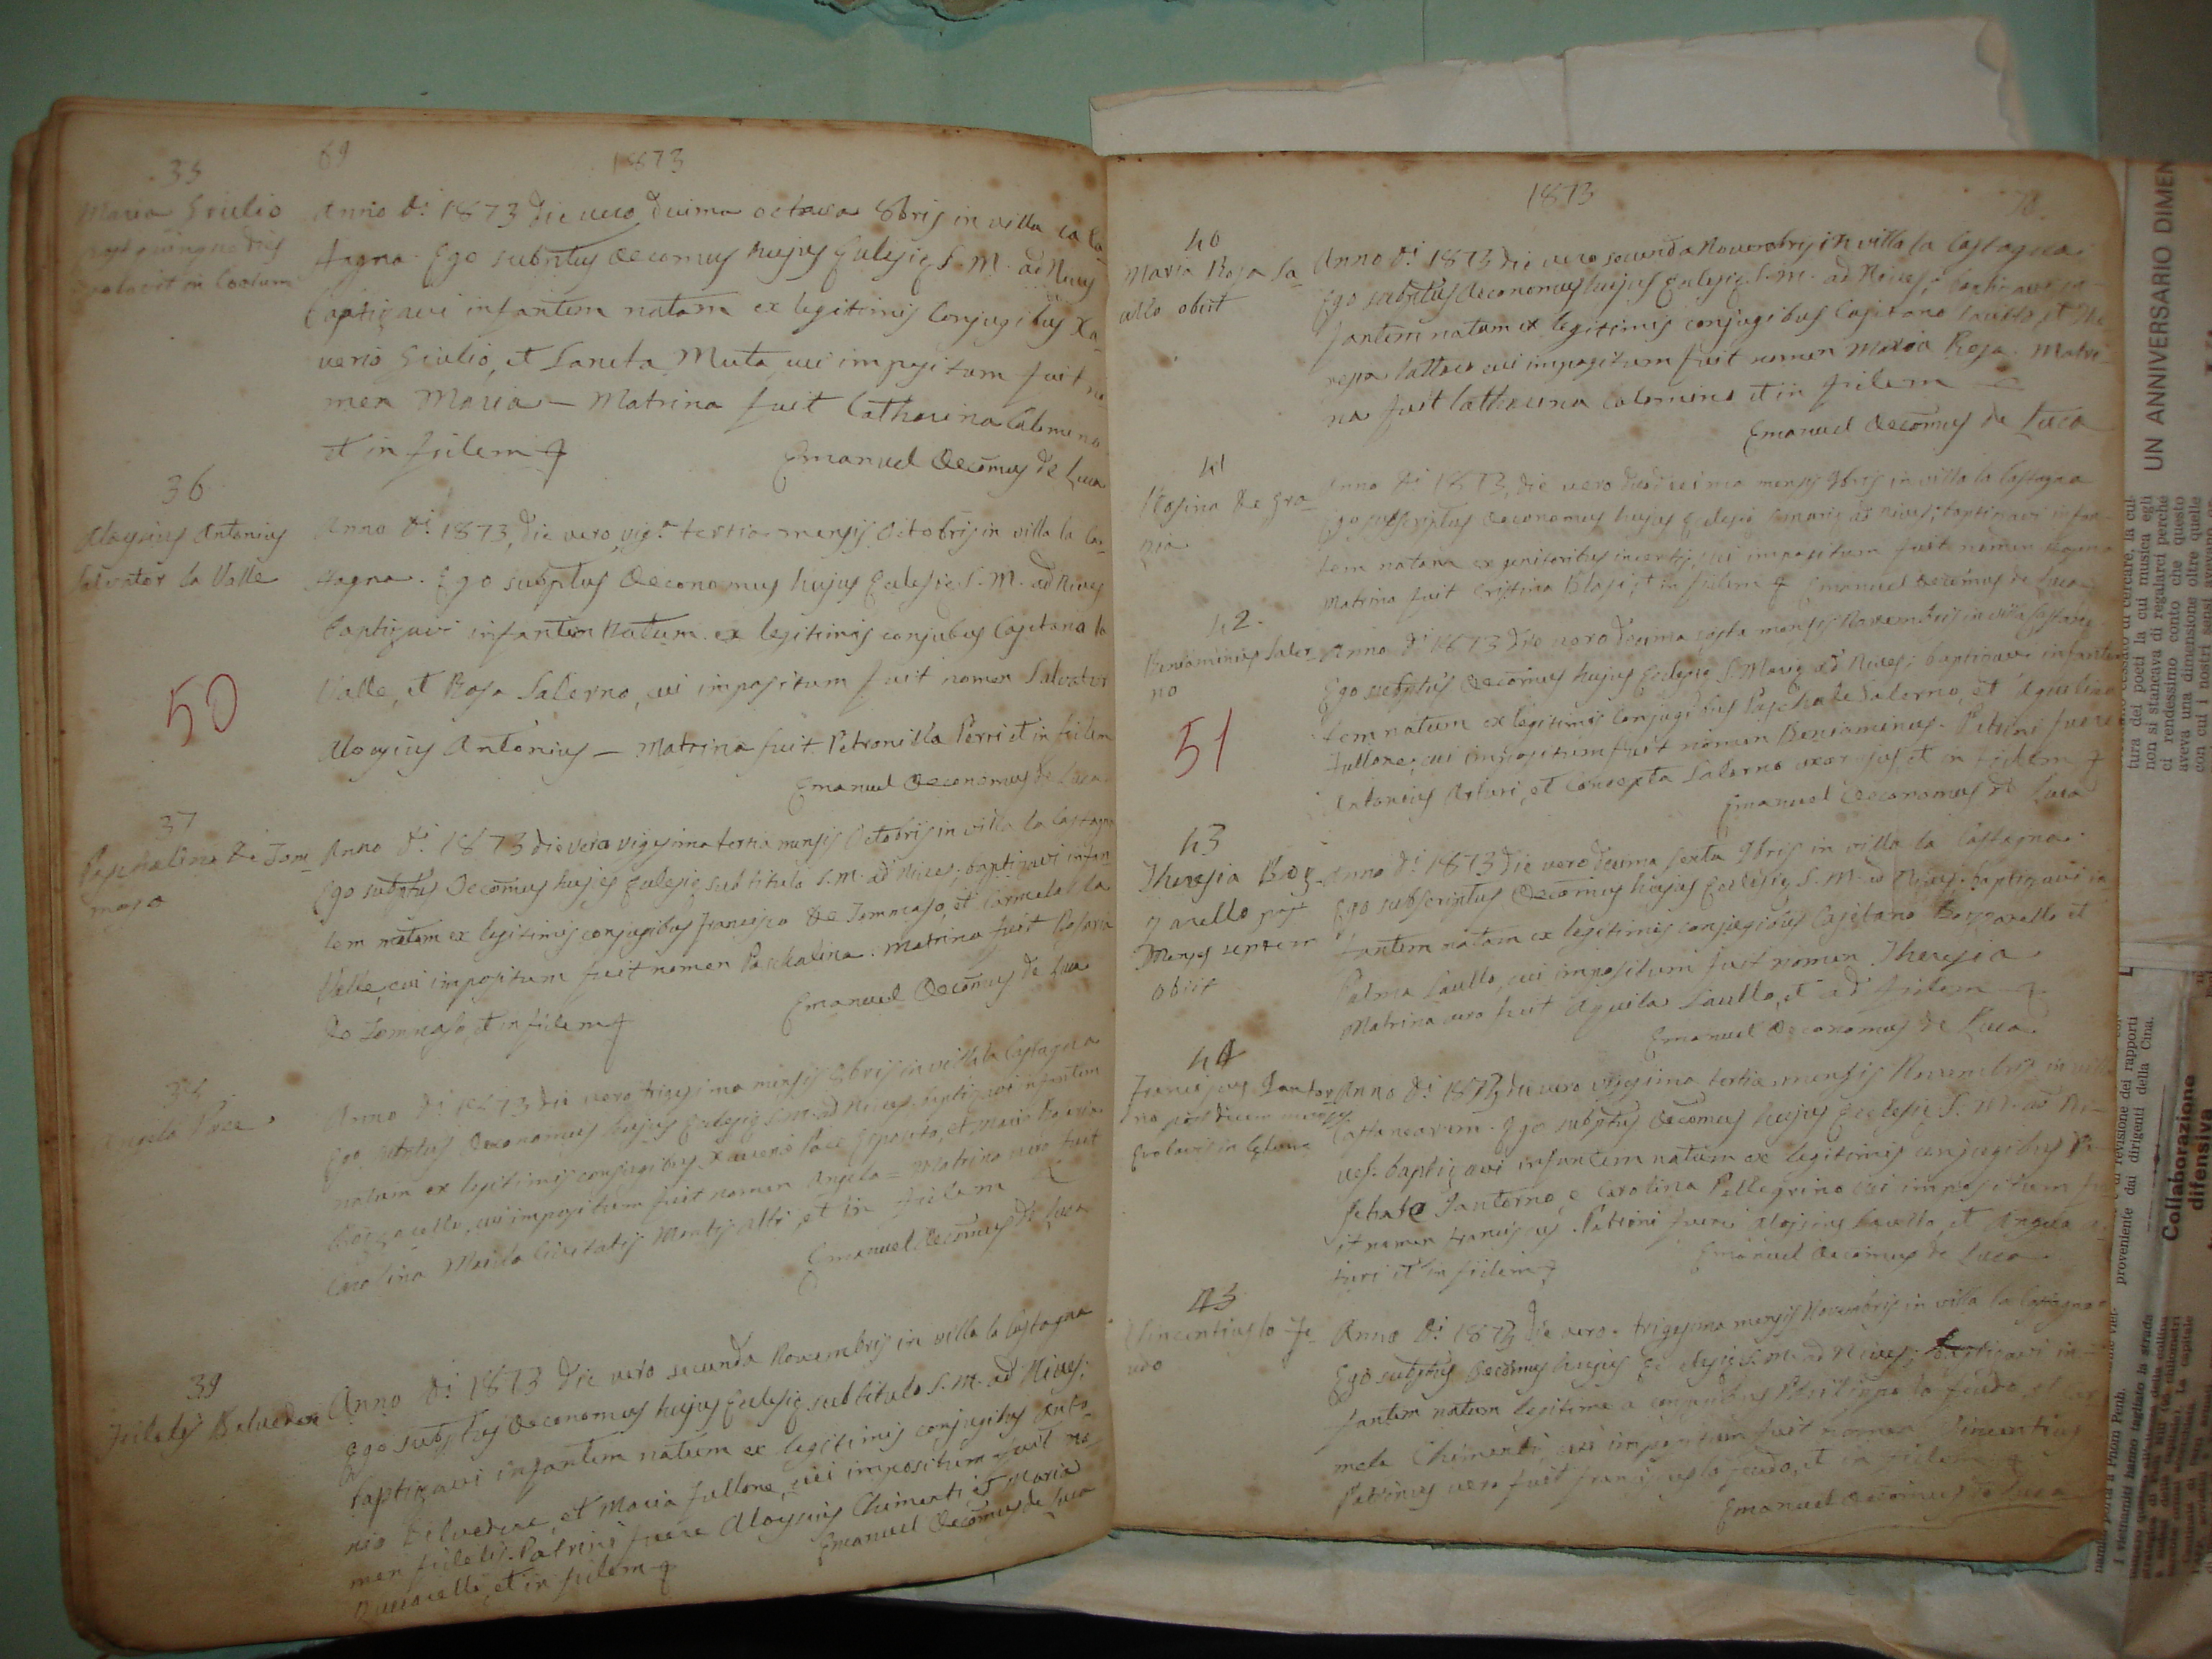 69
1873
35
Maria Giulio
post quinque dies
evolavit in Coelum
Anno Di 1873 die vero decima octava 8bris in villa la Ca
stagna. Ego subptus Oeconomus hujus Eclesię S. M. ad Nives
baptizavi infantem natam ex legitimis Conjugibus Xa
verio Giulio, et Sancta Muta, cui impositum fuit no
men Maria — Matrina fuit Catharina Colomino
et in fidem
Emanuel Oecomus de Luca
36
Aloysius Antonius
Salvator la Valle
Anno Di 1873, die vero vig.a tertia mensis Octobris in villa la Ca
stagna. Ego subptus Oeconomus hujus Eclesię S. M. ad Nives
baptizavi infantem natum ex legitimis conjubus Cajetano la
Valle, et Rosa Salerno, cui impositum fuit nomen Salvator
Aloysius Antonius — Matrina fuit Petronilla Perri et in fidem
Emanuel Oeconomus de Luca
50
37
Paschalina de Tom
maso
Anno Di 1873 die vero vigesima tertia mensis Octobris in villa la Castagna
Ego subptus Oecomus hujus Eclesię sub titulo S. M. ad Nives; baptizavi infan
tem natam ex legitimis conjugibus Francisco de Tommaso, et Carmela la
Valle, cui impositum fuit nomen Paschalina. Matrina fuit
de Tommaso, et in fidem
Emanuel Oecomus de Luca
38
Angela Pace
Anno Di 1873 die vero trigesima mensis 8bris in villa la Castagna
Ego subptus Oeconomus hujus Eclesię S. M. ad Nives, baptizavi infantem
natam ex legitimis conjugibus Xaverio Pace Esposito, et Maria
cui impositum fuit nomen Angela = Matrina vero fuit
Carolina Civitatis Montis Alti et in fidem
Emanuel Oecomus de Luca
39
Fidelis Belvedere
Anno Di 1873 die vero secunda Novembris in villa la Castagna
Ego subptus Oeconomus hujus Eclesię sub titulo S. M. ad Nives;
baptizavi infantem natum ex legitimis conjugibus Anto
nio Belvedere, et Maria Fullone, cui impositum fuit no
men Fidelis. Patrini fuere Aloysius Chimenti et Maria
et in fidem
Emanuel Oecomus de Luca
1873
70.
40
Maria Rosa Sa
ullo obiit
Anno Di 1873 die vero secunda Novembris in villa la Castagna
Ego subptus Oeconomus hujus Eclesię S. M. ad Nives; baptizavi in
fantem natam ex legitimis conjugibus Cajetano Saullo et
cui impositum fuit nomen Maria Rosa. Matri
na fuit Catharina Colomino et in fidem
Emanuel Oecomus de Luca
41
Rosina de Gra
zia
Anno Di 1873, die vero mensis 9bris in villa la Castagna
Ego subscriptus Oeconomus hujus Eclesię S. Marię ad Nives; baptizavi infan
tem natam ex genitoribus incertis, cui impositum fuit nomen
Matrina fuit Cristina Blasi, et in fidem Emanuel Oecomus de Luca
42.
Beniaminus Saler
no
Anno Di 1873 die vero decima sexta mensis Novembris in villa Castanea
Ego subptus Oecomus hujus Eclesię S. Marię ad Nives; baptizavi infan
tem natum ex legitimis conjugibus Paschale Salerno, et Aquilina
Fullone, cui impositum fuit nomen Beniaminus. Patrini fuere
Antonius Arturi, et Concepta Salerno uxor ejus, et in fidem
Emanuel Oeconomus de Luca
51
43
Theresia Boz
zarello post
Menses septem
obiit
Anno Di 1873 die vero decima sexta 9bris in villa la Castagna
Ego subscriptus Oecomus hujus Eclesię S. M. ad Nives, baptizavi in
fantem natam ex legitimis conjugibus Cajetano Bozzarello et
Palma Saullo, cui impositum fuit nomen Theresia
Matrina vero fuit Aquila Saullo, et ad fidem
Emanuel Oeconomus de Luca
44
Franciscus Santor
no post decem menses
Evolavit in Celum
Anno Di 1873 die vero vigesima tertia mensis Novembris in villa
Castanearum. Ego subptus Oecomus hujus Eclesię S. M. ad Ni
ves. baptizavi infantem natum ex legitimis conjugibus Pa
schale Santorno, e Carolina Pellegrino cui impositum fu
it nomen Franciscus. Patrini fuere Aloysius Saullo, et Angela Ar
turi et in fidem
Emanuel Oecomus de Luca
45
Vincentius lo Fe
udo
Anno Di 1873 die vero trigesima mensis Novembris in villa la Castagna
Ego subptus Oecomus hujus Eclesię S. M. ad Nives; baptizavi in
fantem natum legitime a conjugibus Philippo lo Feudo, et Car
mela Chimenti, cui impositum fuit nomen Vincentius
Patrinus vero fuit Franciscus lo Feudo, et in fidem
Emanuel Oecomus de Luca
UN ANNIVERSARIO DIMEN
tura dei poeti la cui musica egli
non si stancava di regalarci perché
ci rendessimo conto che questo
aveva una dimensione oltre quelle
con cui i nostri sensi avevano
di revisione dei rapporti
proveniente dai dirigenti della Cina.
Collaborazione
difensiva